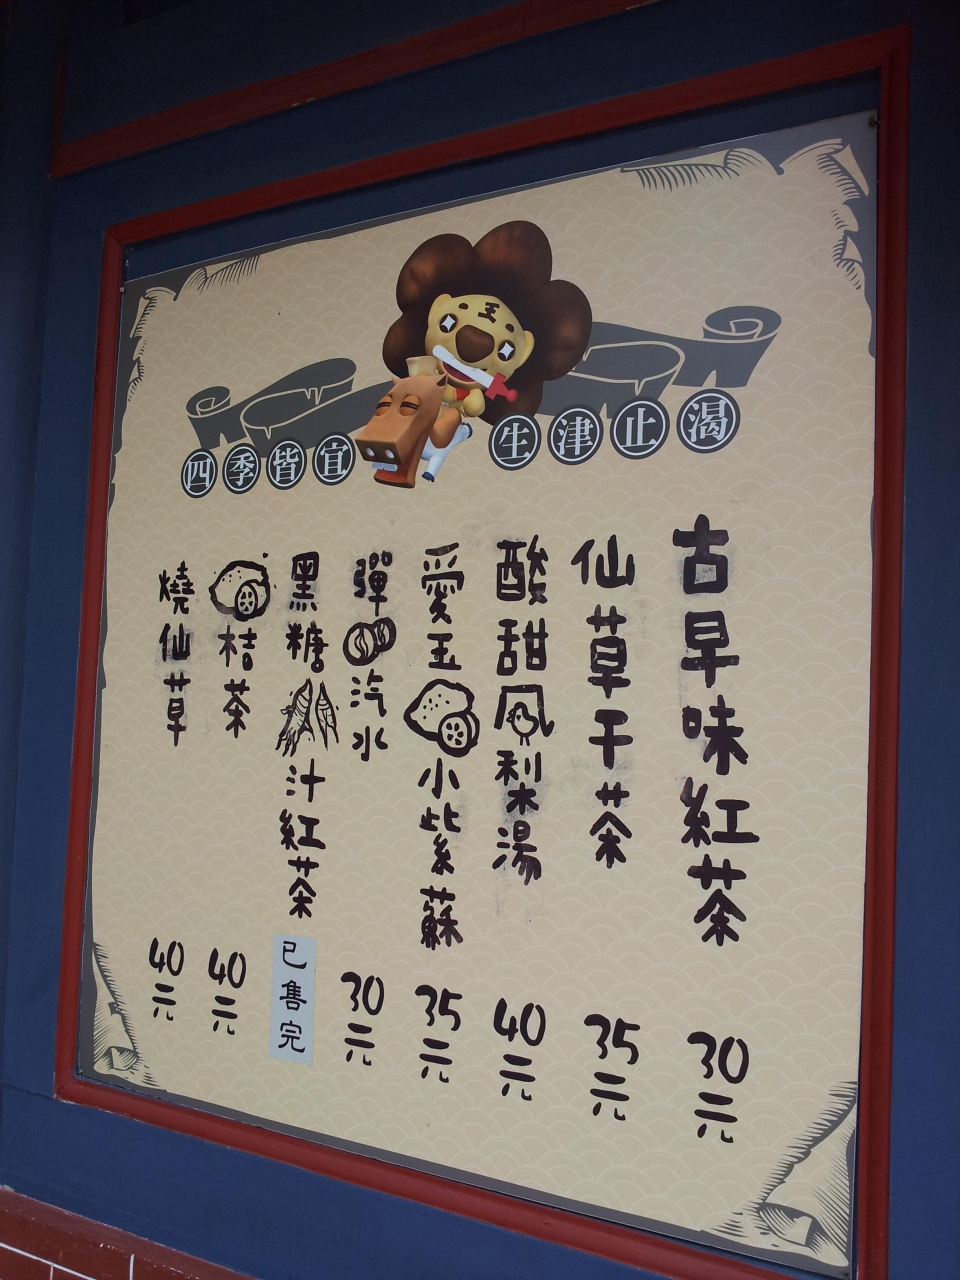 王
四季皆宜
生津止渴
古早味紅茶
30元
仙草干茶
35元
酸甜鳳梨湯
40元
愛玉小紫蘇
35元
彈汽水
30元
黑糖汁紅茶
已售完
桔茶
40元
燒仙草
40元